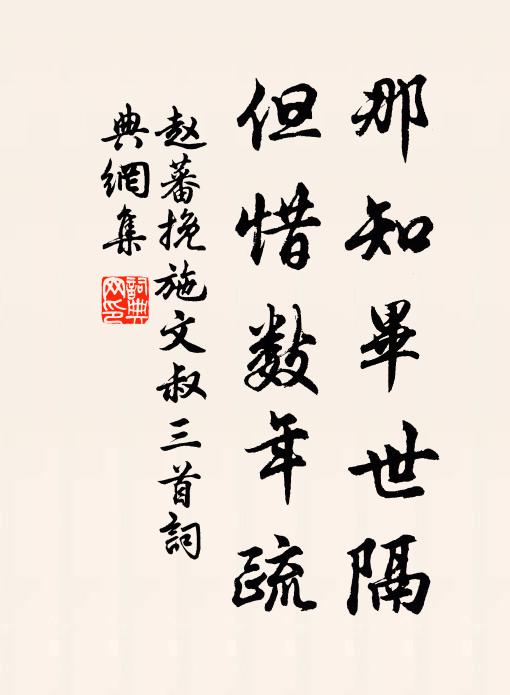 那知畢世隔
但惜數年疏
趙蕃挽施文叔三首詞
典網集
詞典網印